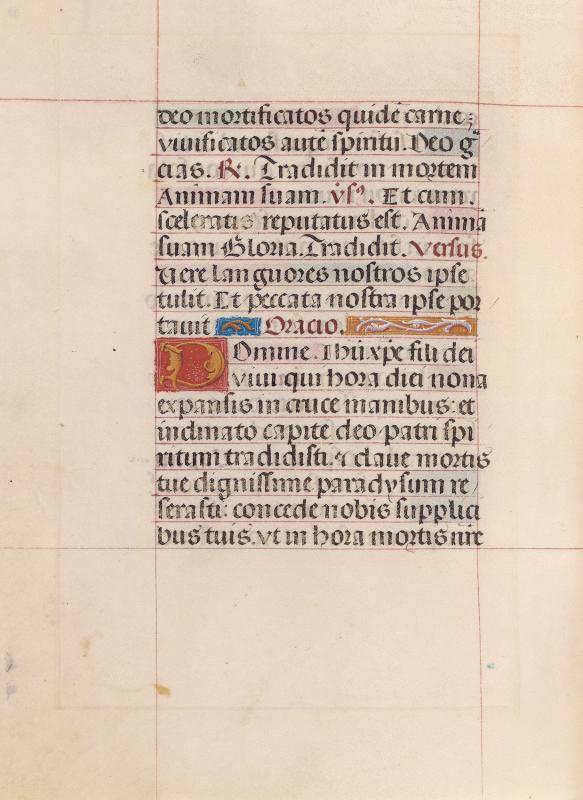 deo mortificatos quidē carne;
viuificatos autē spiritu. Deo gᵃ
cias. ℟. Tradidit in mortem
Animam suam. v̄sꝰ. Et cum.
sceleratis reputatus est. Animā
suam Gloria. Tradidit. Versus.
Uere languores nostros ipse
tulit. Et peccata nostra ipse por
tauit Oracio.
Domine. Ihū xp̄e fili dei
viui qui hora diei nona
expansis in cruce manibus: et
inclinato capite deo patri spi
ritum tradidisti. ⁊ claue mortis
tue dignissime paradysum re
serasti: concede nobis supplici
bus tuis. vt in hora mortis nr̄e